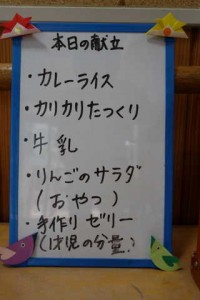 本日の献立
・カレーライス
・カリカリたつくり
・牛乳
・りんごのサラダ
(おやつ)
・手作りゼリー
(1才児の分量.)